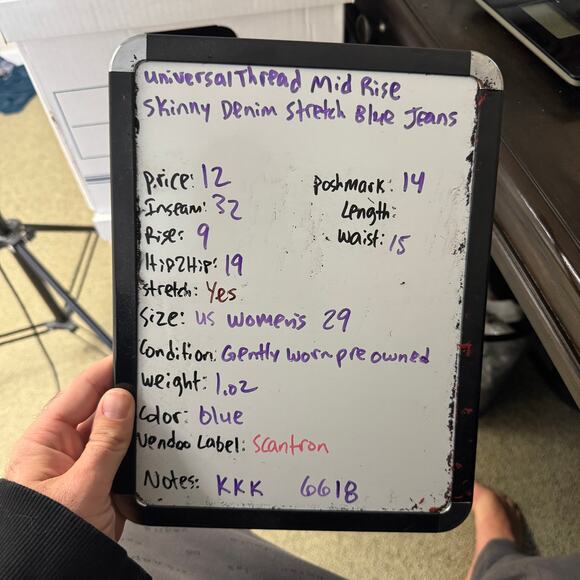 universal Thread Mid Rise
Skinny Denim Stretch Blue Jeans
Price: 12
Poshmark: 14
Inseam: 32
Length:
Rise: 9
Waist: 15
Hip2Hip: 19
Stretch: Yes
Size: US women's 29
Condition: Gently worn pre owned
Weight: 1.02
Color: blue
Vendoo Label: Scantron
Notes: KKK 6618